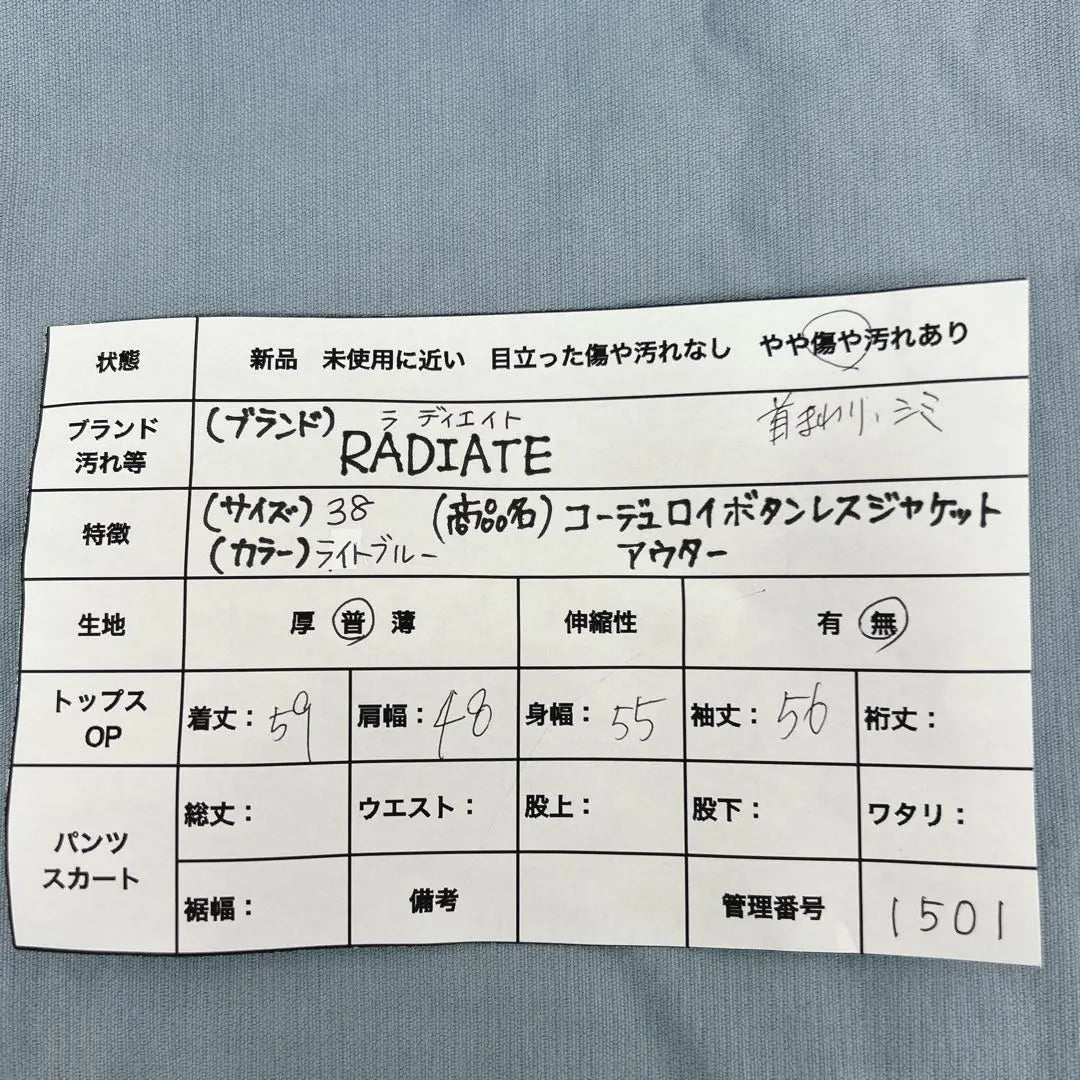 状態 新品 未使用に近い 目立った傷や汚れなし やや傷や汚れあり
ブランド
汚れ等
(ブランド) ラディエイト
RADIATE
首まわり、シミ
特徴
(サイズ) 38 (商品名) コーデュロイボタンレスジャケット
(カラー) ライトブルー アウター
生地 厚 普 薄 伸縮性 有 無
トップス
OP
着丈: 59 肩幅: 48 身幅: 55 袖丈: 56 裄丈:
パンツ
スカート
総丈: ウエスト: 股上: 股下: ワタリ:
裾幅: 備考 管理番号 1501